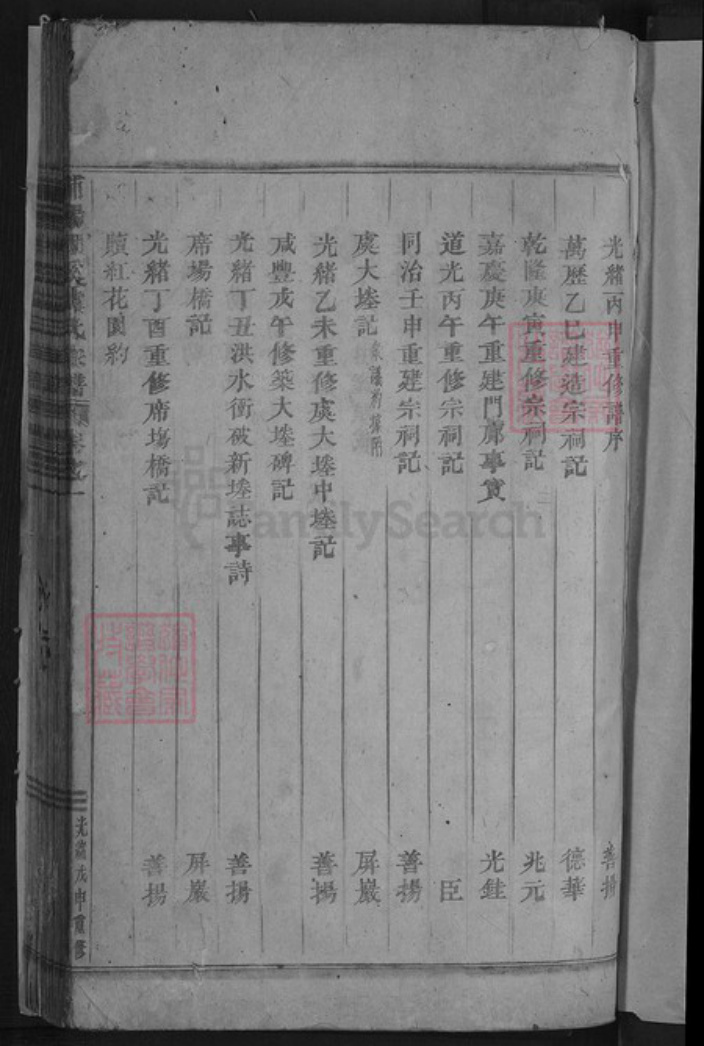 光緒丙申重修譜序 善揚
萬歷乙巳建造宗祠記 德華
乾隆庚寅重修宗祠記 兆元
嘉慶庚午重建門廊事實 光銈
道光丙午重修宗祠記 臣
同治壬申重建宗祠記 善揚
虞大堘記 屏巖
光緒乙未重修虞大堘中堘記 善揚
咸豐戊午修築大堘碑記
光緒丁丑洪水衝破新堘誌事詩 善揚
席場橋記 屏巖
光緒丁酉重修席塲橋記 善揚
贖紅花園約
氏宗譜
光緒戊申重修
FamilySearch